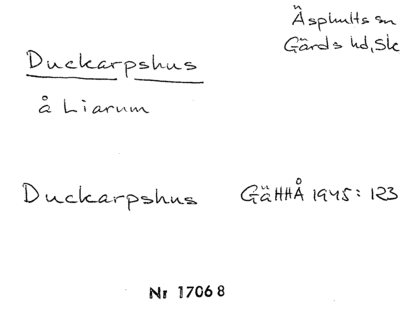 Äsphults sn
Gärds hd, Sk
Duckarpshus
å Liarum
Duckarpshus GäHHÅ 1945: 123
Nr 17068